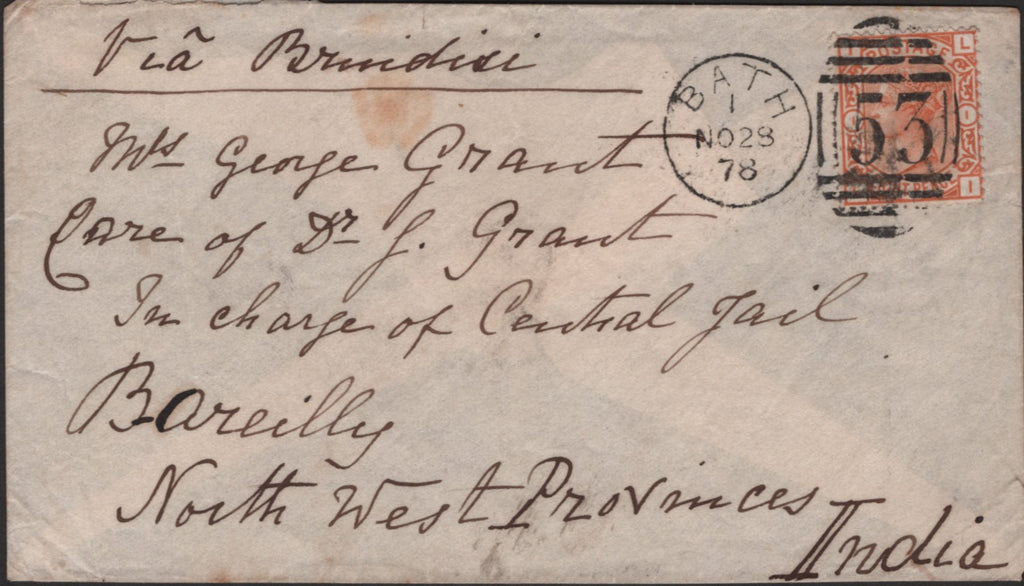 Viâ Brindisi
BATH
1
NO28
78
53
POSTAGE
L
I
Mrs George Grant
Care of Dr J. Grant
In charge of Central Jail
Bareilly
North West Provinces
India